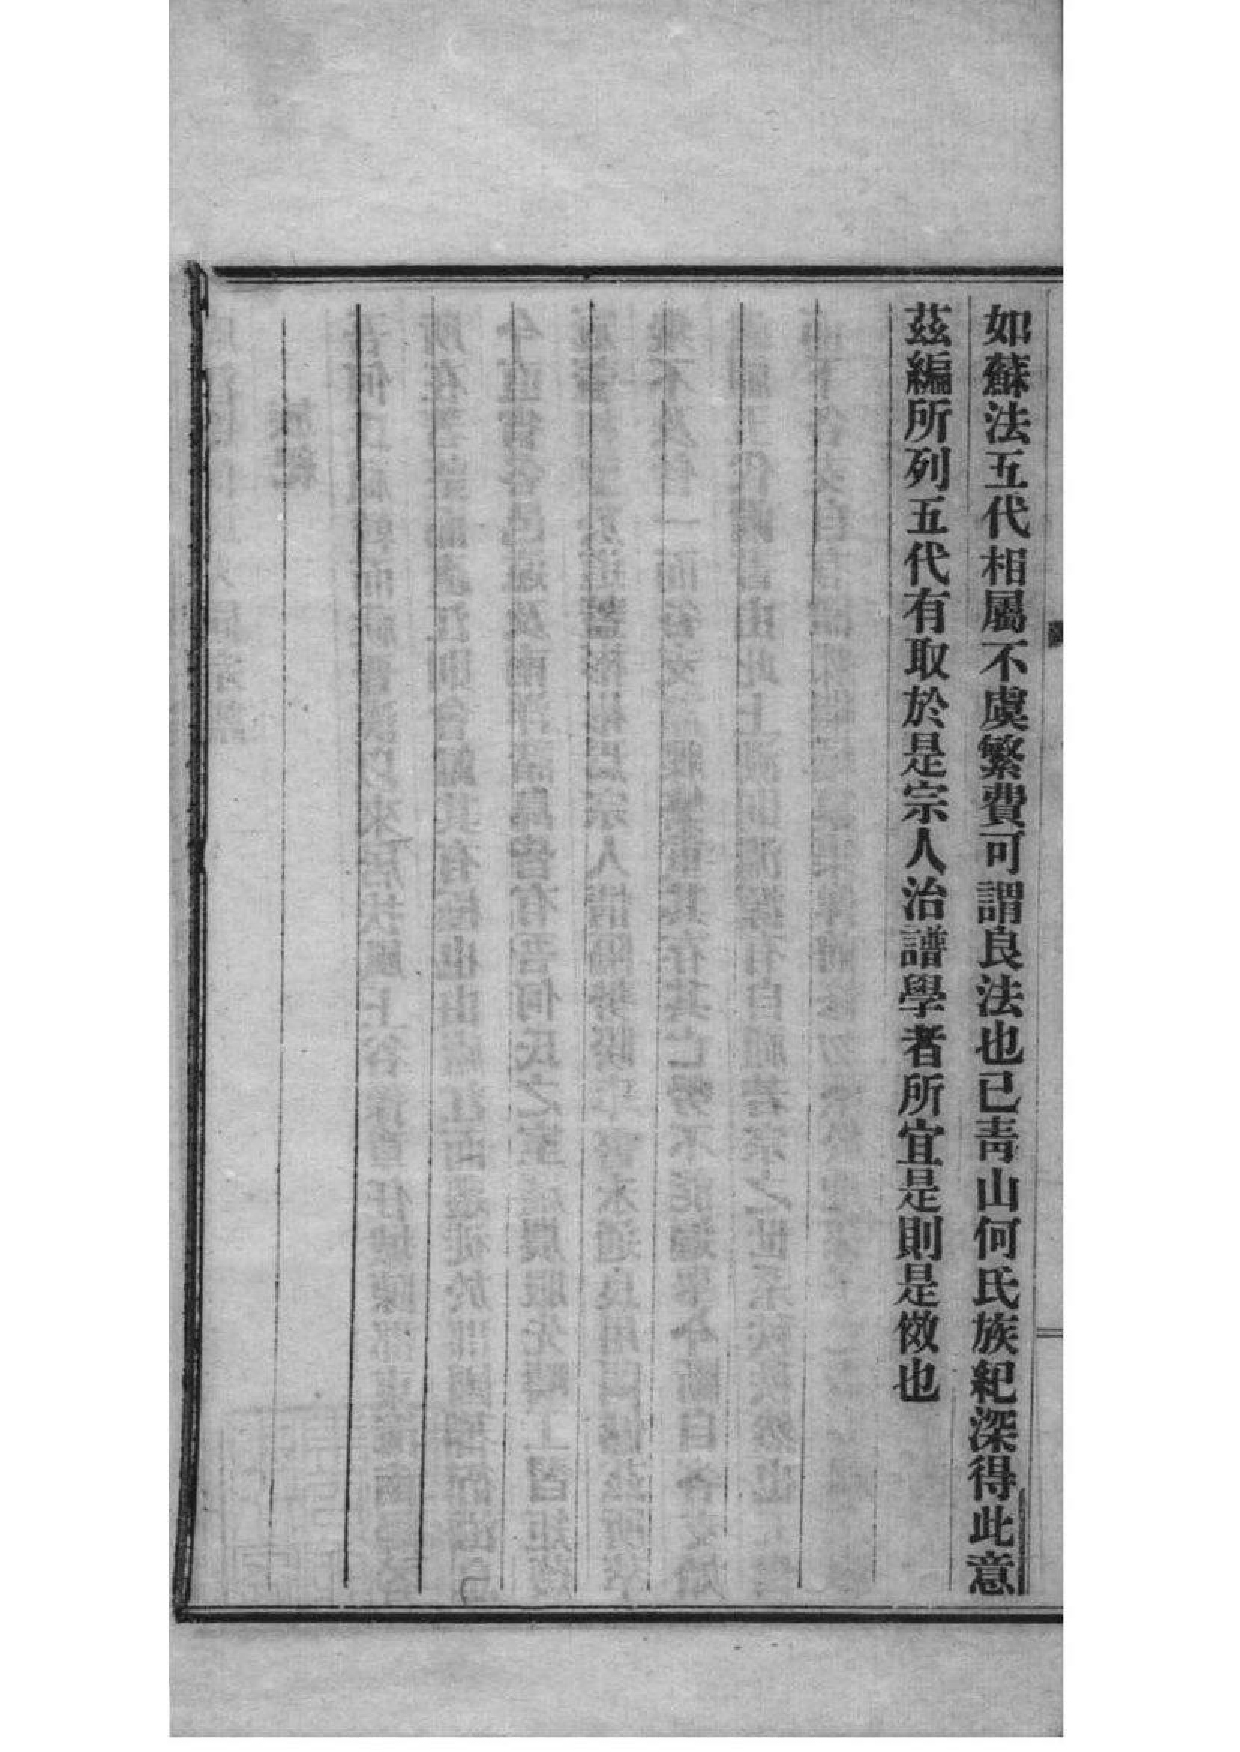 如蘇法五代相屬不虞繁費可謂良法也已靑山何氏族紀深得此意
茲編所列五代有取於是宗人治譜學者所宜是則是傚也